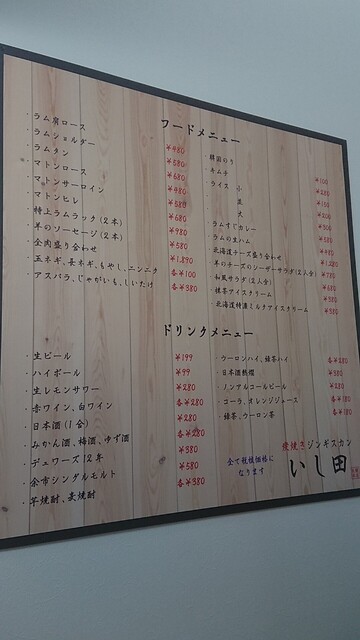 フードメニュー
・ラム肩ロース ¥480
・ラムショルダー ¥580
・ラムタン ¥680
・マトンロース ¥480
・マトンサーロイン ¥580
・マトンヒレ ¥680
・特上ラムラック(2本) ¥980
・羊のソーセージ(2本) ¥580
・全肉盛り合わせ ¥1,890
・玉ネギ、長ネギ、もやし、ニンニク 各¥100
・アスパラ、じゃがいも、しいたけ 各¥380
・韓国のり ¥100
・キムチ ¥280
・ライス 小 ¥150
並 ¥200
大 ¥300
・ラムすじカレー ¥980
・ラムの生ハム ¥580
・北海道チーズ盛り合わせ
・羊のチーズのシーザーサラダ(2人金)
・和風サラダ(2人金)
・抹茶アイスクリーム ¥380
・北海道特濃ミルクアイスクリーム ¥380
ドリンクメニュー
・生ビール ¥199
・ハイボール ¥99
・生レモンサワー ¥280
・赤ワイン、白ワイン 各¥280
・日本酒(1合) ¥280
・みかん酒、梅酒、ゆず酒 各¥280
・デュワーズ12年 ¥380
・余市シングルモルト ¥580
・芋焼酎、麦焼酎 各¥380
・ウーロンハイ、緑茶ハイ 各¥280
・日本酒熱燗 ¥380
・ノンアルコールビール ¥280
・コーラ、オレンジジュース 各¥180
・緑茶、ウーロン茶 各¥180
全て税抜価格に
なります
炭焼きジンギスカン
いし田